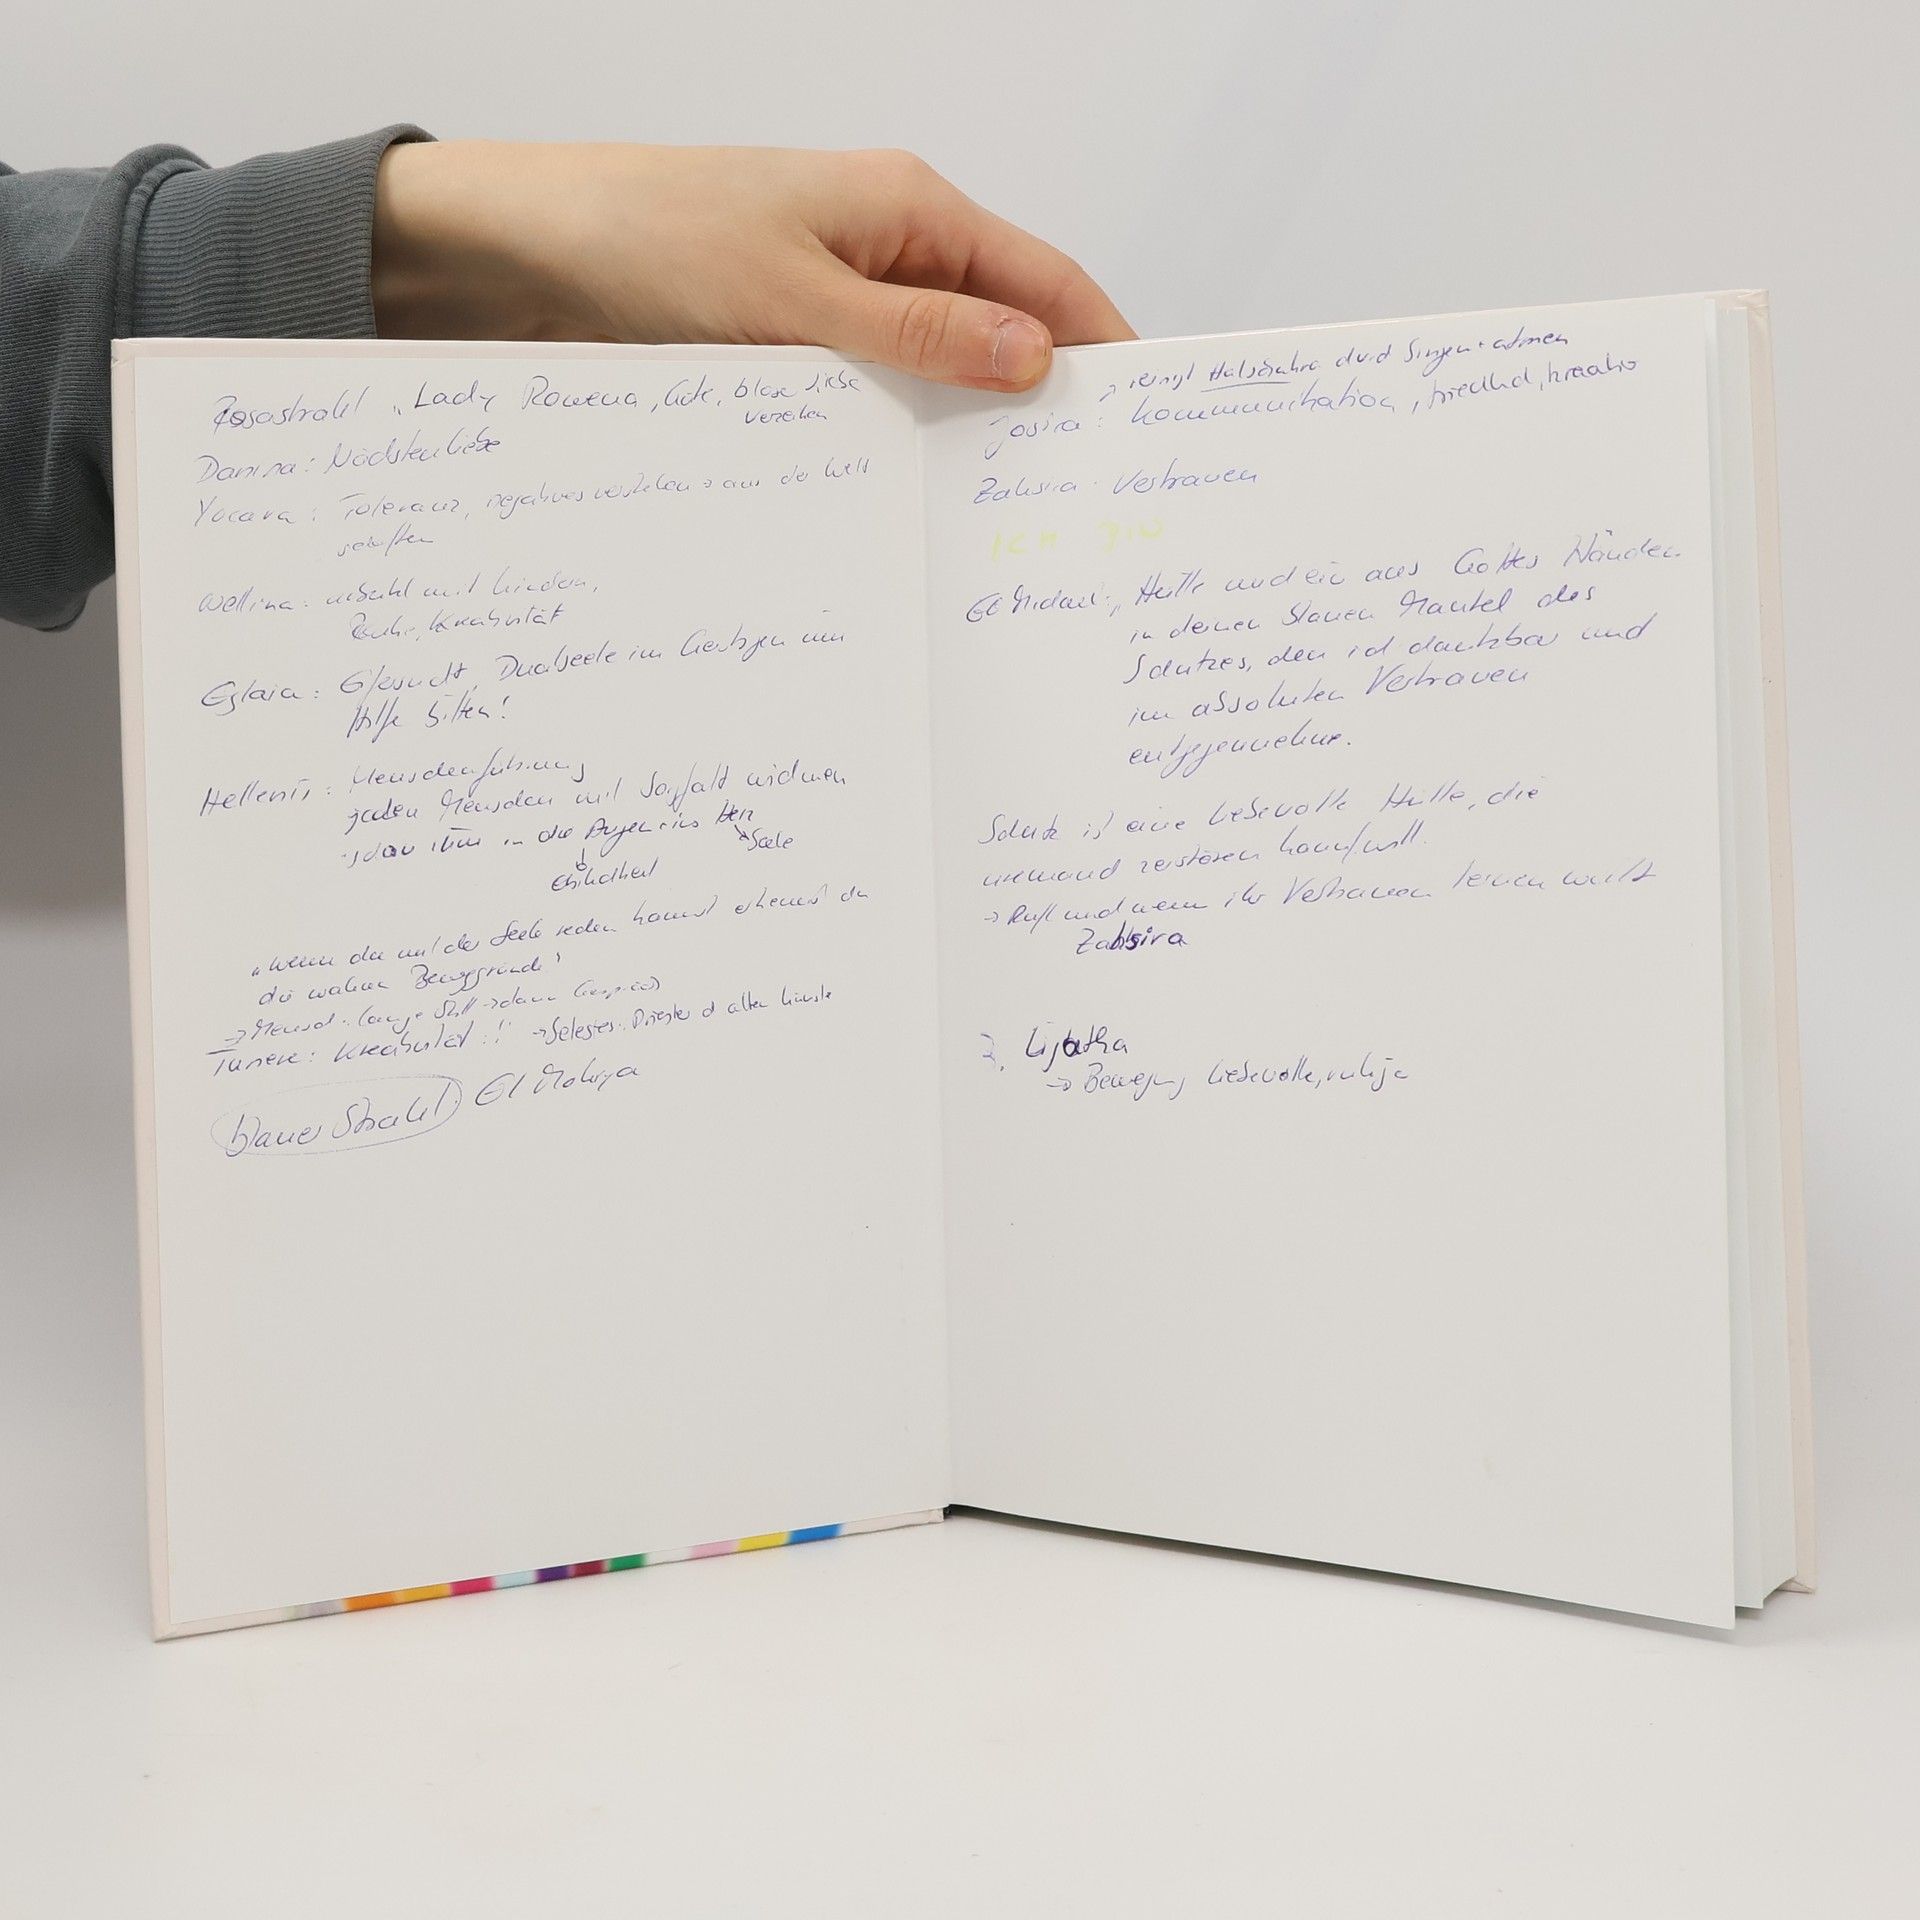 Rosastrahl „Lady Rowena, Güte, Liebe
verzeihen
Danina: Nächstenliebe
Yocara: Toleranz, negatives verstehen → aus der Welt
schaffen
Wellina: mit Kindern,
Ruhe, Kreativität
Eglaia: Eifersucht, Dualseele im Geistigen um
Hilfe bitten!
Hellenis: Menschenführung
jeden Menschen mit Sorgfalt widmen
schau ihm in die Augen + ins Herz
Seele
„wenn du mit der Seele reden kannst erkennst du
die wahren Beweggründe"
→ Mensch lange still → dann Gespräch
Tanere: Kreativität!! → Selestes: Priester d alten Künste
blauer Strahl El Morya
→ reinigt Halschakra durch Singen + atmen
Josira: Kommunikation, friedlich, kreativ
Zahsira: Vertrauen
ICH BIN
El Michael: „Hülle und ein aus Gottes Händen
in deinen blauen Mantel des
Schutzes, den ich dankbar und
im absoluten Vertrauen
entgegennehme.
Schutz ist eine liebevolle Hülle, die
niemand zerstören kann/will.
→ Ruft und wenn ihr Vertrauen lernen wollt
Zahsira
Lijatha
→ Bewegung liebevolle, ruhige